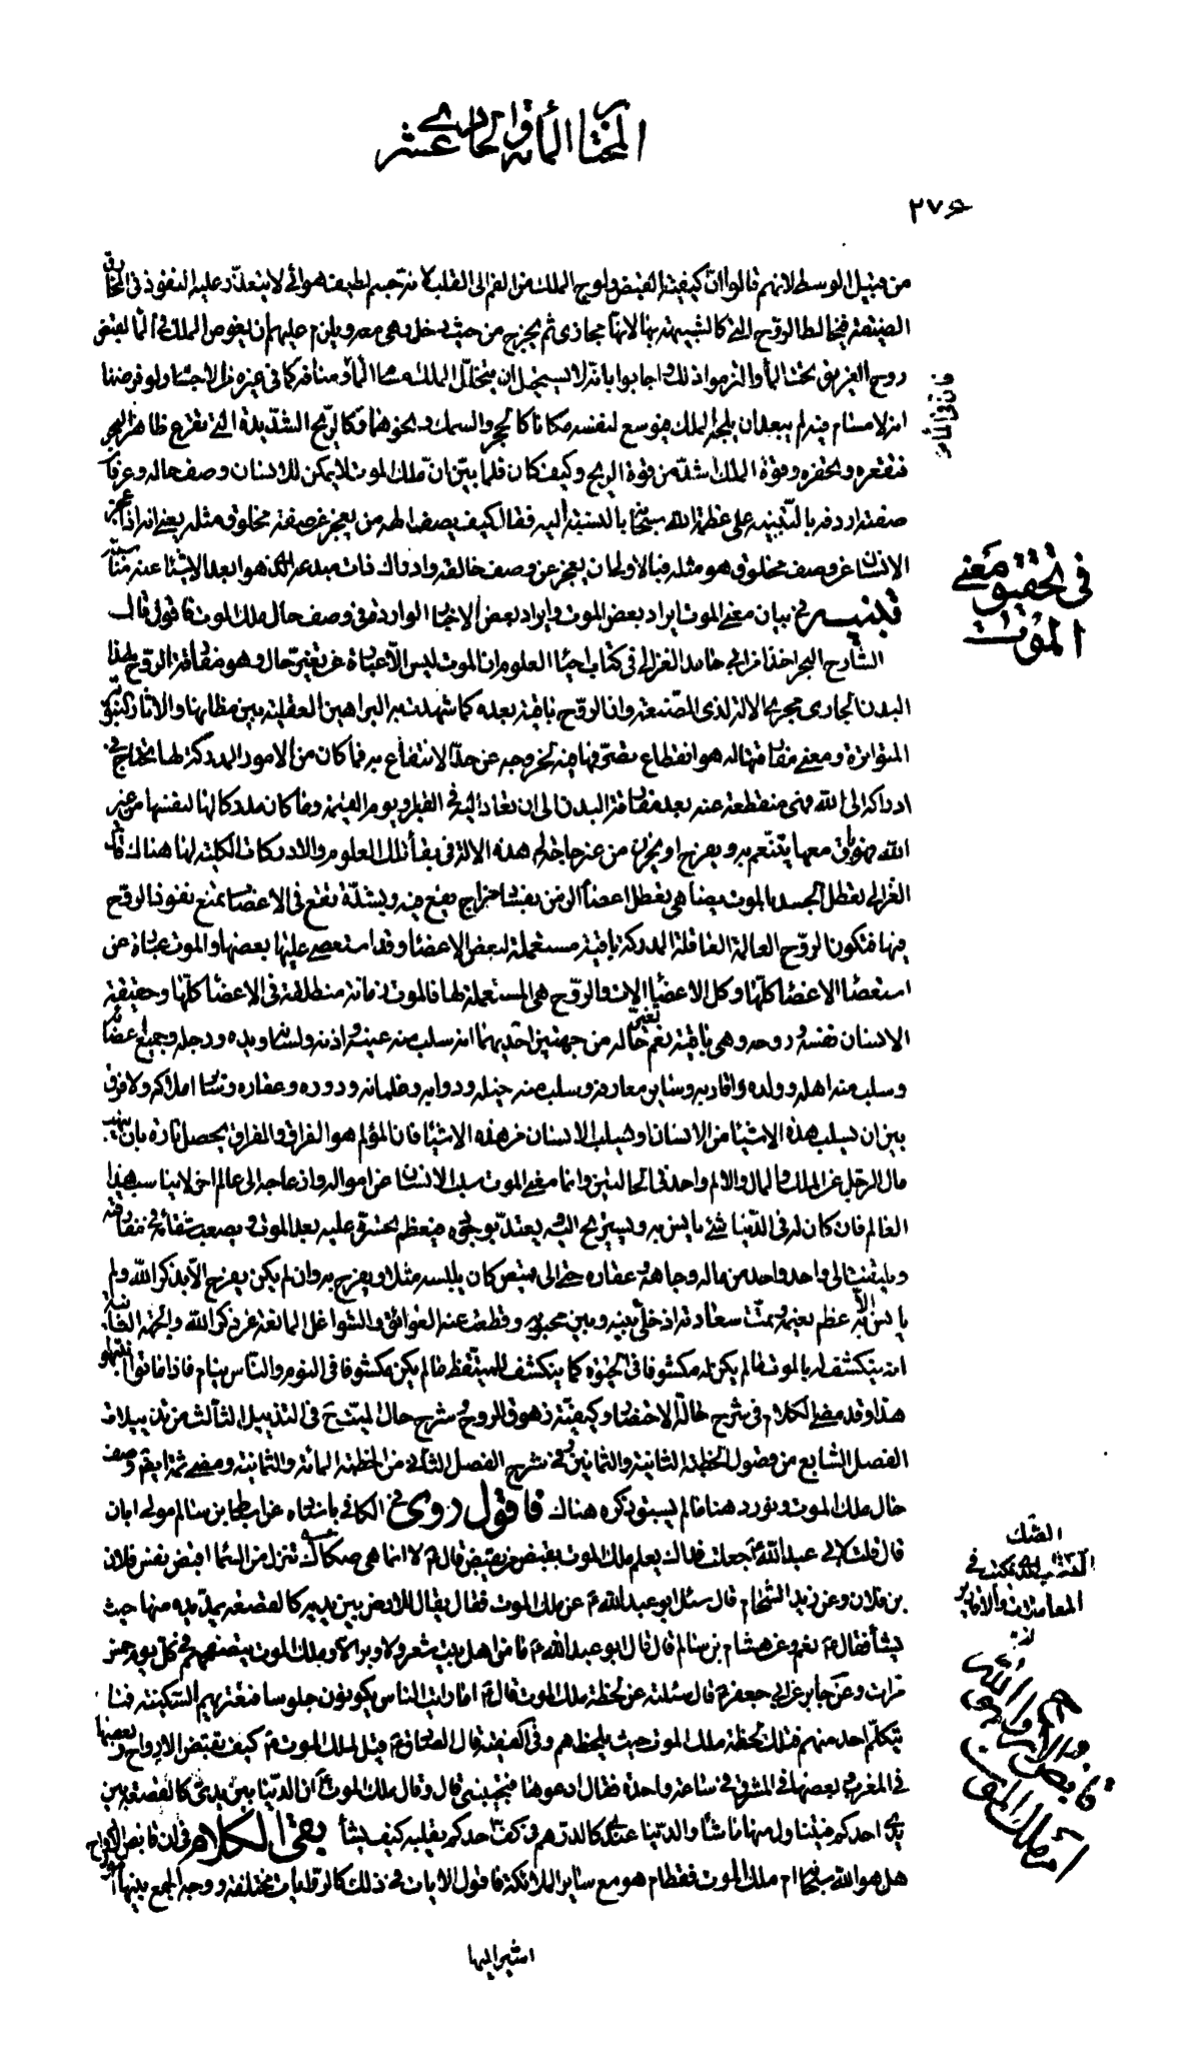 المختار المائة والحادي عشر
٢٧٥
من قبيل الوسط لانهم قالوا ان كيفية القبض ولوج الملك من الفم الى القلب لانه جسم لطيف هوائي لا يتعذر عليه النفوذ في المخارق
الضيقة فيخالط الروح التي كالشبيهة بها لانها بخاري ثم يخرج من حيث دخل وهي معه ويلزم عليهم ان يغوص الملك في الماء لقبض
روح الغريق تحت الماء والتزموا ذلك واجابوا بانه لا يستحيل ان يتخلل الملك مسام الماء فان في الماء منافذ كما في غيره من الاجسام ولو فرضنا
انه لا مسام فيه لم يبعد ان يلجه الملك فيوسع لنفسه مكانا كالحجر والسمك ونحوهما وكالريح الشديدة التي تقرع ظاهر البحر
فتقعره وتحفره وقوة الملك اشد من قوة الريح وكيف كان فلما بين ان ملك الموت لا يمكن للانسان وصف حاله وعرفان
صفته اردفه بالتنبيه على عظمة الله سبحانه بالنسبة اليه فقال كيف يصف الهه من يعجز عن صفة مخلوق مثله يعني انه اذا عجز
الانسان عن وصف مخلوق هو مثله فبالاولى ان يعجز عن وصف خالقه وادراك ذات مبدعه الذي هو ابعد الاشياء عنه مناسبة
تنبيه في بيان معنى الموت وايراد بعض الاخبار الواردة في وصف حال ملك الموت فاقول قال
الشارح البحراني اخذا من ابي حامد الغزالي في كتاب احياء العلوم ان الموت ليس الا عبارة عن تغير حال وهو مفارقة الروح لهذا
البدن الجاري مجرى الآلة لذي الصنعة وان الروح باقية بعده كما شهدت به البراهين العقلية بين مظانها والآثار النبوية
المتواترة ومعنى مفارقتها له هو انقطاع تصرفها فيه لخروجه عن حد الانتفاع به فما كان من الامور المدركة لها تحتاج في
ادراكه الى آلة فهي منقطعة عنه بعد مفارقة البدن الى ان تعاد اليه في القبر او يوم القيمة وما كان مدركا لها لنفسها من غير
آلة فهو باق معها يتنعم به ويفرح او يحزن من غير حاجة الى هذه الآلة في بقاء تلك العلوم والادراكات الكلية لها هناك قال
الغزالي تعطل الجسد بالموت يضاهي تعطل اعضاء الزمن بفساد مزاج يقع فيه وبشدة تقع في الاعصاب تمنع نفوذ الروح
فيها فتكون الروح العالمة العاقلة المدركة باقية مستعملة لبعض الاعضاء وقد استعصى عليها بعضها والموت عبارة عن
استعصاء الاعضاء كلها وكل الاعضاء آلات والروح هي المستعملة لها فالموت زمانة مطلقة في الاعضاء كلها وحقيقة
الانسان نفسه وروحه وهي باقية نعم تغير حاله من جهتين احديهما انه سلب منه عينه واذنه ولسانه ويده ورجله وجميع اعضائه
وسلب منه اهله وولده واقاربه وسائر معارفه وسلب منه خيله ودوابه وغلمانه ودوره وعقاره وساير املاكه ولا فرق
بين ان يسلب هذه الاشياء من الانسان او يسلب الانسان من هذه الاشياء فان المؤلم هو الفراق والفراق يحصل تارة بان ينهب
مال الرجل وتارة بان يسلب الرجل عن الملك والمال والالم واحد في الحالتين وانما معنى الموت سلب الانسان عن امواله وازعاجه الى عالم اخر لا يناسب هذا
العالم فان كان له في الدنيا شيء يانس به ويستريح اليه ويعتد بوجوده فيعظم تحسره عليه بعد الموت ويصعب شقائه في مفارقته
ويلتفت الى واحد واحد من ماله وجاهه وعقاره حتى الى قميص كان يلبسه مثلا ويفرح به وان لم يكن يفرح الا بذكر الله ولم
يانس الا به عظم نعيمه وتمت سعادته اذ خلى بينه وبين محبوبه وقطعت عنه العوائق والشواغل المانعة عن ذكر الله والجهة الثانية
انه ينكشف له بالموت ما لم يكن له مكشوفا في الحيوة كما ينكشف للمتيقظ ما لم يكن مكشوفا في النوم والناس نيام فاذا ماتوا انتبهوا
هذا وقد مضى الكلام في شرح حالة الاحتضار وكيفية زهوق الروح وشرح حال الميت ح في التذييل الثالث من تذييلات
الفصل السابع من فصول الخطبة الثانية والثمانين وفي شرح الفصل الثاني من الخطبة المائة والثمانية ومضى ثمة ايضا وصف
حال ملك الموت ونورد هنا ما لم يسبق ذكره هناك فاقول روى في الكافي باسناده عن اسباط بن سالم مولى ابان
قال قلت لابي عبد الله ع جعلت فداك يعلم ملك الموت بقبض من يقبض قال ع لا انما هي صكاك تنزل من السماء اقبض نفس فلان
بن فلان وعن زيد الشحام قال سئل ابو عبد الله ع عن ملك الموت فقال يقال الارض بين يديه كالقصعة يمد يده منها حيث
يشاء فقال ع نعم وعن هشام بن سالم قال قال ابو عبد الله ع ما من اهل بيت شعر ولا وبر الا وملك الموت يتصفحهم في كل يوم خمس
مرات وعن جابر عن ابي جعفر ع قال سئلته عن لحظة ملك الموت قال ع اما رايت الناس يكونون جلوسا فتعتريهم السكينة فما
يتكلم احد منهم فتلك لحظة ملك الموت حيث يلحظهم وفي الفقيه قال الصادق ع قيل لملك الموت ع كيف تقبض الارواح وبعضها
في المغرب وبعضها في المشرق في ساعة واحدة فقال ادعوها فتجيبني قال وقال ملك الموت ع ان الدنيا بين يدي كالقصعة بين
يدي احدكم فيتناول منها ما شاء والدنيا عندي كالدرهم في كف احدكم يقلبه كيف يشاء بقي الكلام في ان قابض الارواح
هل هو الله سبحانه ام ملك الموت فقط ام هو مع ساير الملائكة فاقول الايات في ذلك كالروايات مختلفة ووجه الجمع بينها امور
اشير اليها
فان في الماء
في تحقيق معنى
الموت
الصك
الكتاب الذي يكتب في
المعاملات والاقارير
في ان
قابض الارواح هو الله
ام ملك الموت